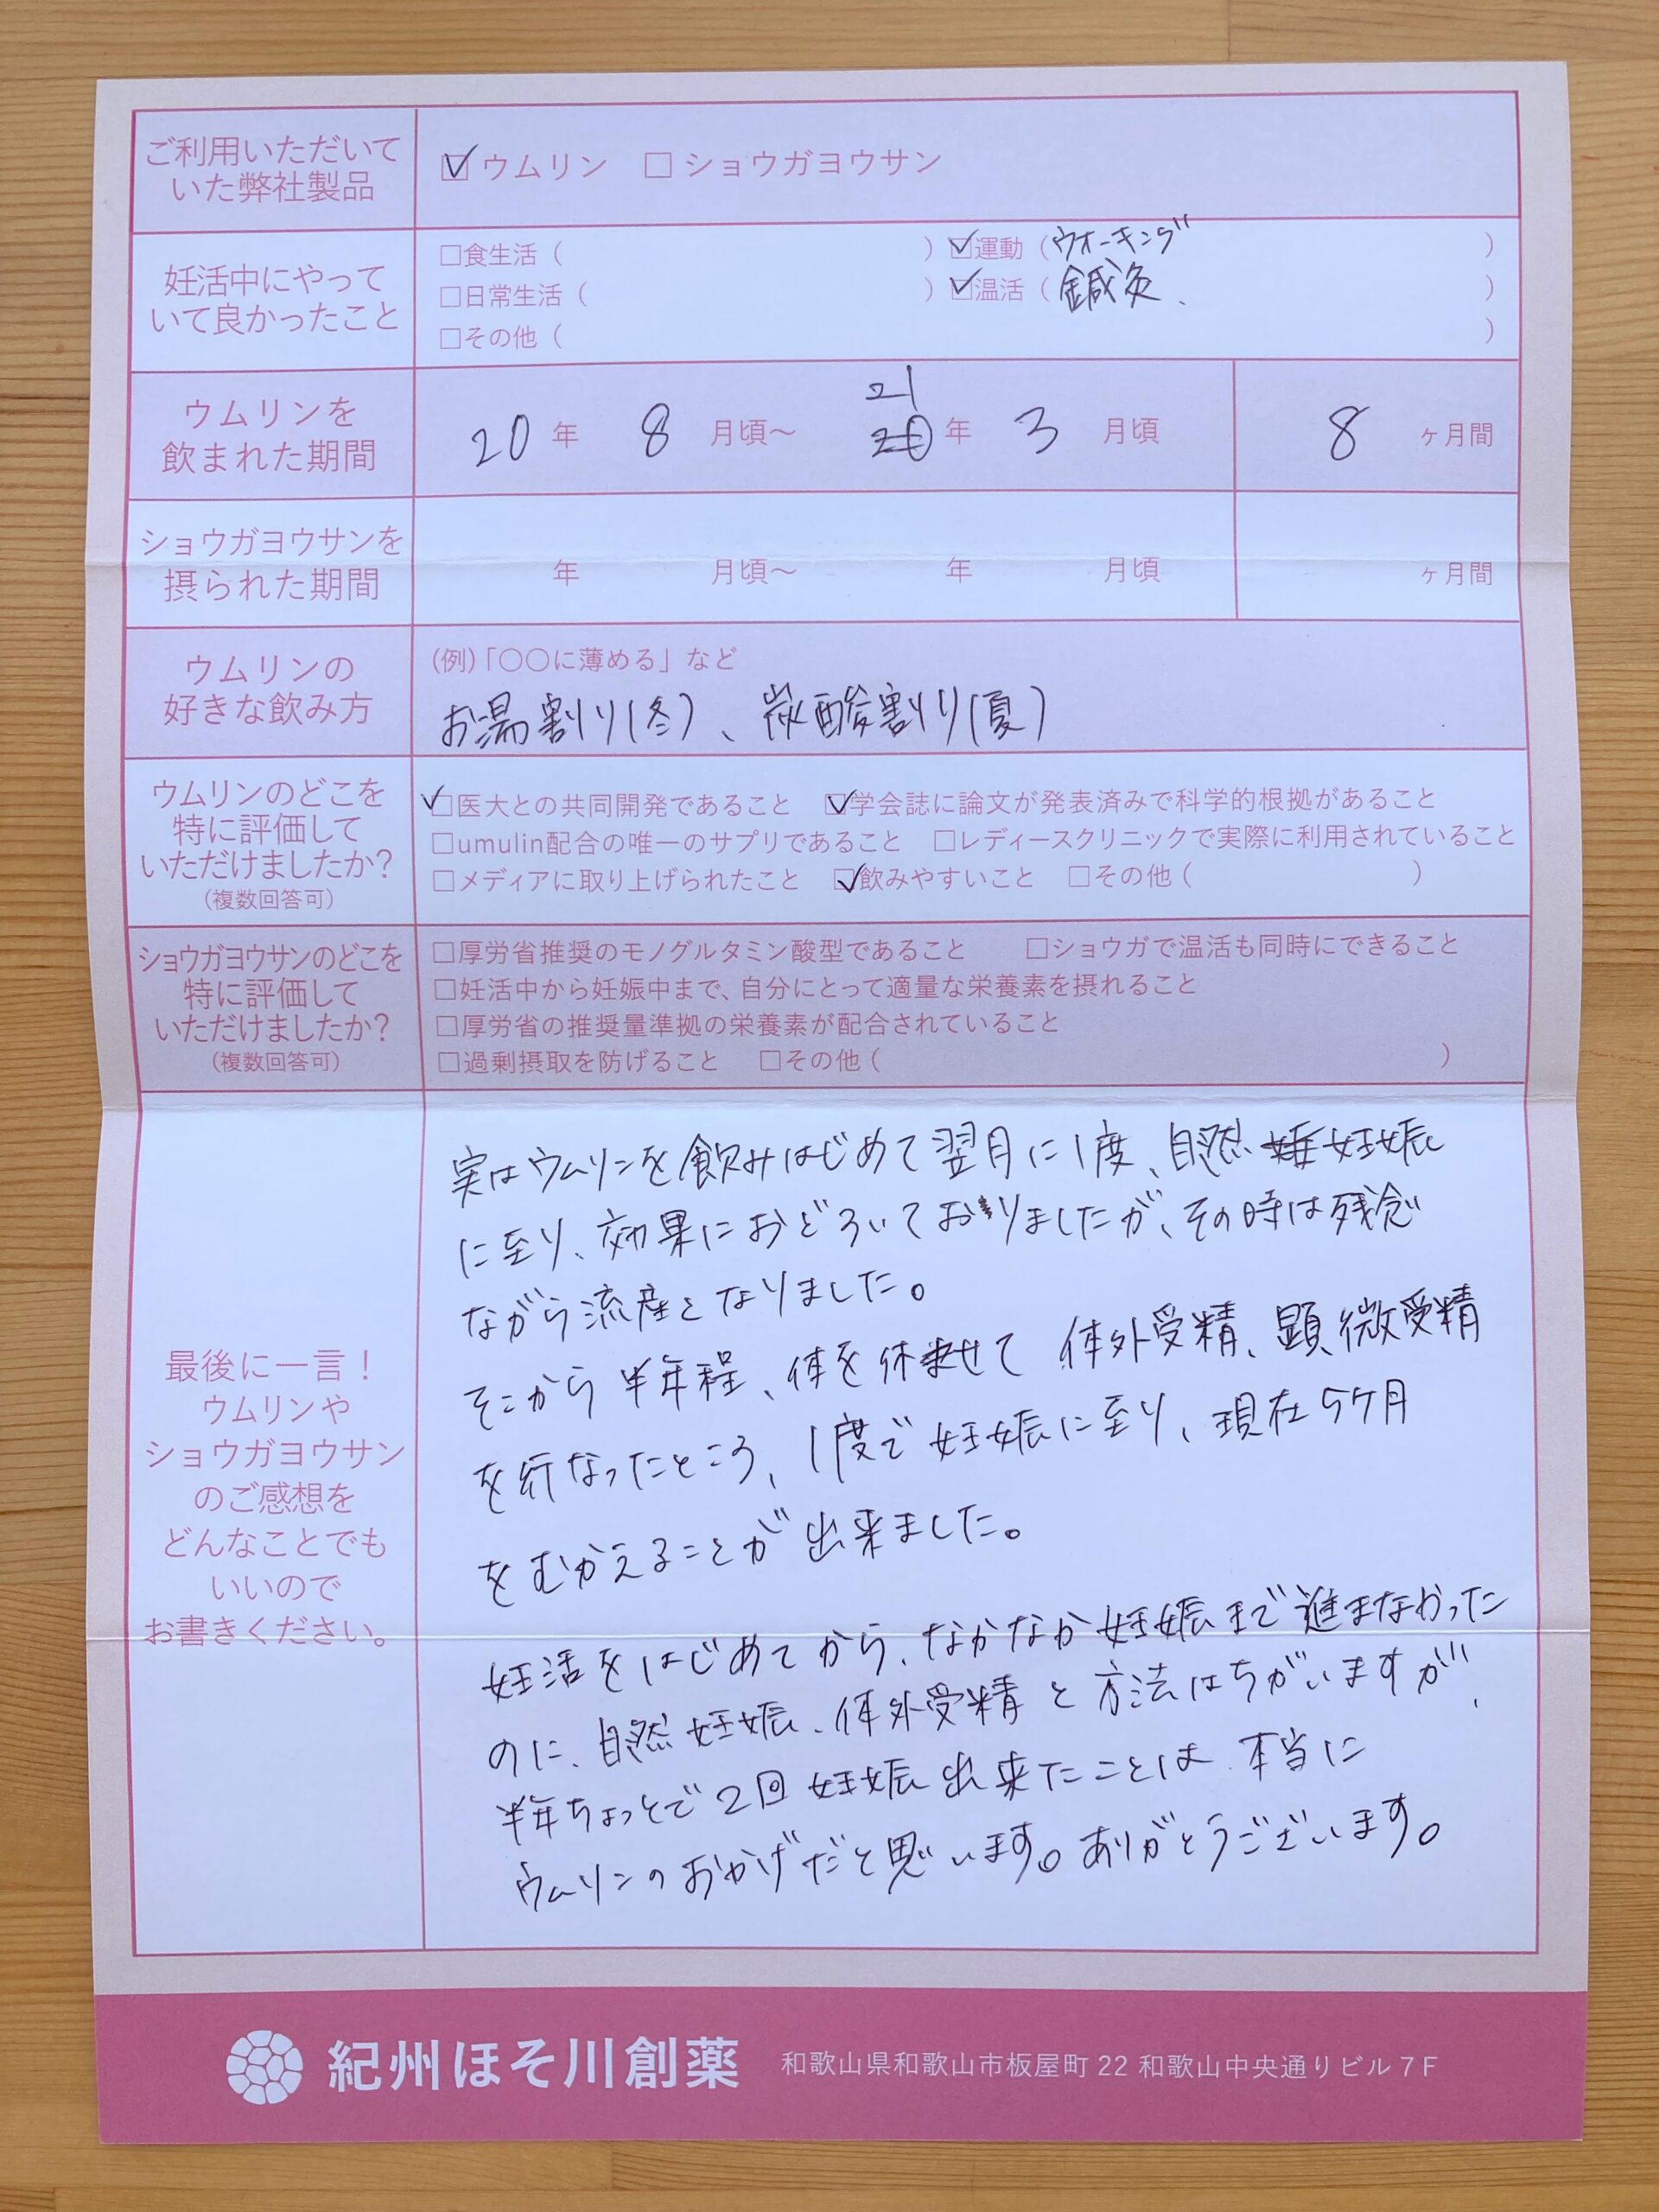 ご利用いただいて
いた弊社製品
☑ウムリン □ショウガヨウサン
妊活中にやって
いて良かったこと
□食生活（ ）☑運動（ウォーキング ）
□日常生活（ ）☑温活（鍼灸、 ）
□その他（ ）
ウムリンを
飲まれた期間
20年 8月頃～ 21年 3月頃 8ヶ月間
ショウガヨウサンを
摂られた期間
年 月頃～ 年 月頃 ヶ月間
ウムリンの
好きな飲み方
(例)「○○に薄める」など
お湯割り(冬)、炭酸割り(夏)
ウムリンのどこを
特に評価して
いただけましたか？
(複数回答可)
☑医大との共同開発であること ☑学会誌に論文が発表済みで科学的根拠があること
□umulin配合の唯一のサプリであること □レディースクリニックで実際に利用されていること
□メディアに取り上げられたこと ☑飲みやすいこと □その他（ ）
ショウガヨウサンのどこを
特に評価して
いただけましたか？
(複数回答可)
□厚労省推奨のモノグルタミン酸型であること □ショウガで温活も同時にできること
□妊活中から妊娠中まで、自分にとって適量な栄養素を摂れること
□厚労省の推奨量準拠の栄養素が配合されていること
□過剰摂取を防げること □その他（ ）
最後に一言！
ウムリンや
ショウガヨウサン
のご感想を
どんなことでも
いいので
お書きください。
実はウムリンを飲みはじめて翌月に1度、自然妊娠
に至り、効果におどろいておりましたが、その時は残念
ながら流産となりました。
そこから半年程、体を休ませて 体外受精、顕微受精
を行なったところ、1度で妊娠に至り、現在5ヶ月
をむかえることが出来ました。
妊活をはじめてから、なかなか妊娠まで進まなかった
のに、自然妊娠、体外受精と方法はちがいますが、
半年ちょっとで2回妊娠出来たことは 本当に
ウムリンのおかげだと思います。ありがとうございます。
紀州ほそ川創薬 和歌山県和歌山市板屋町 22 和歌山中央通りビル 7F